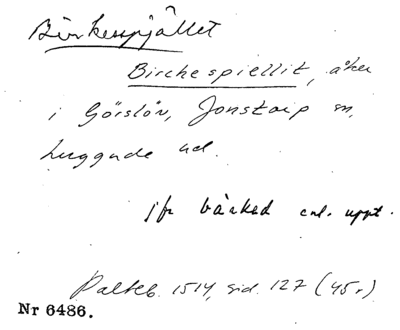 Birkespjället
Birchespiellit, åker
i Görslöv, Jonstorp sn,
Luggude hd.
jfr bärked enl. uppt.
Palteb. 1514, sid. 127 (45r)
Nr 6486.